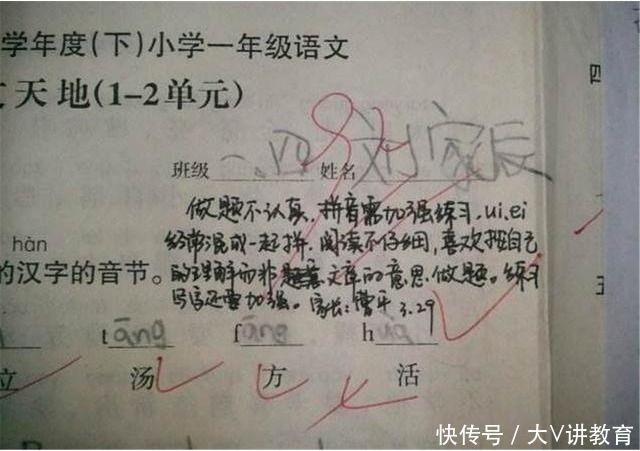 学年度(下)小学一年级语文
天地(1-2单元)
四
班级 一.四 姓名 刘家辰
做题不认真,拼音需加强练习,ui.ei
经常混成一起拼.阅读不仔细,喜欢按自己
的理解而非文章的意思做题。练习
写字还要加强。家长:曹 3.29
hàn
的汉字的音节。
五
tāng fāng h
立 汤 方 活
快传号/大V讲教育